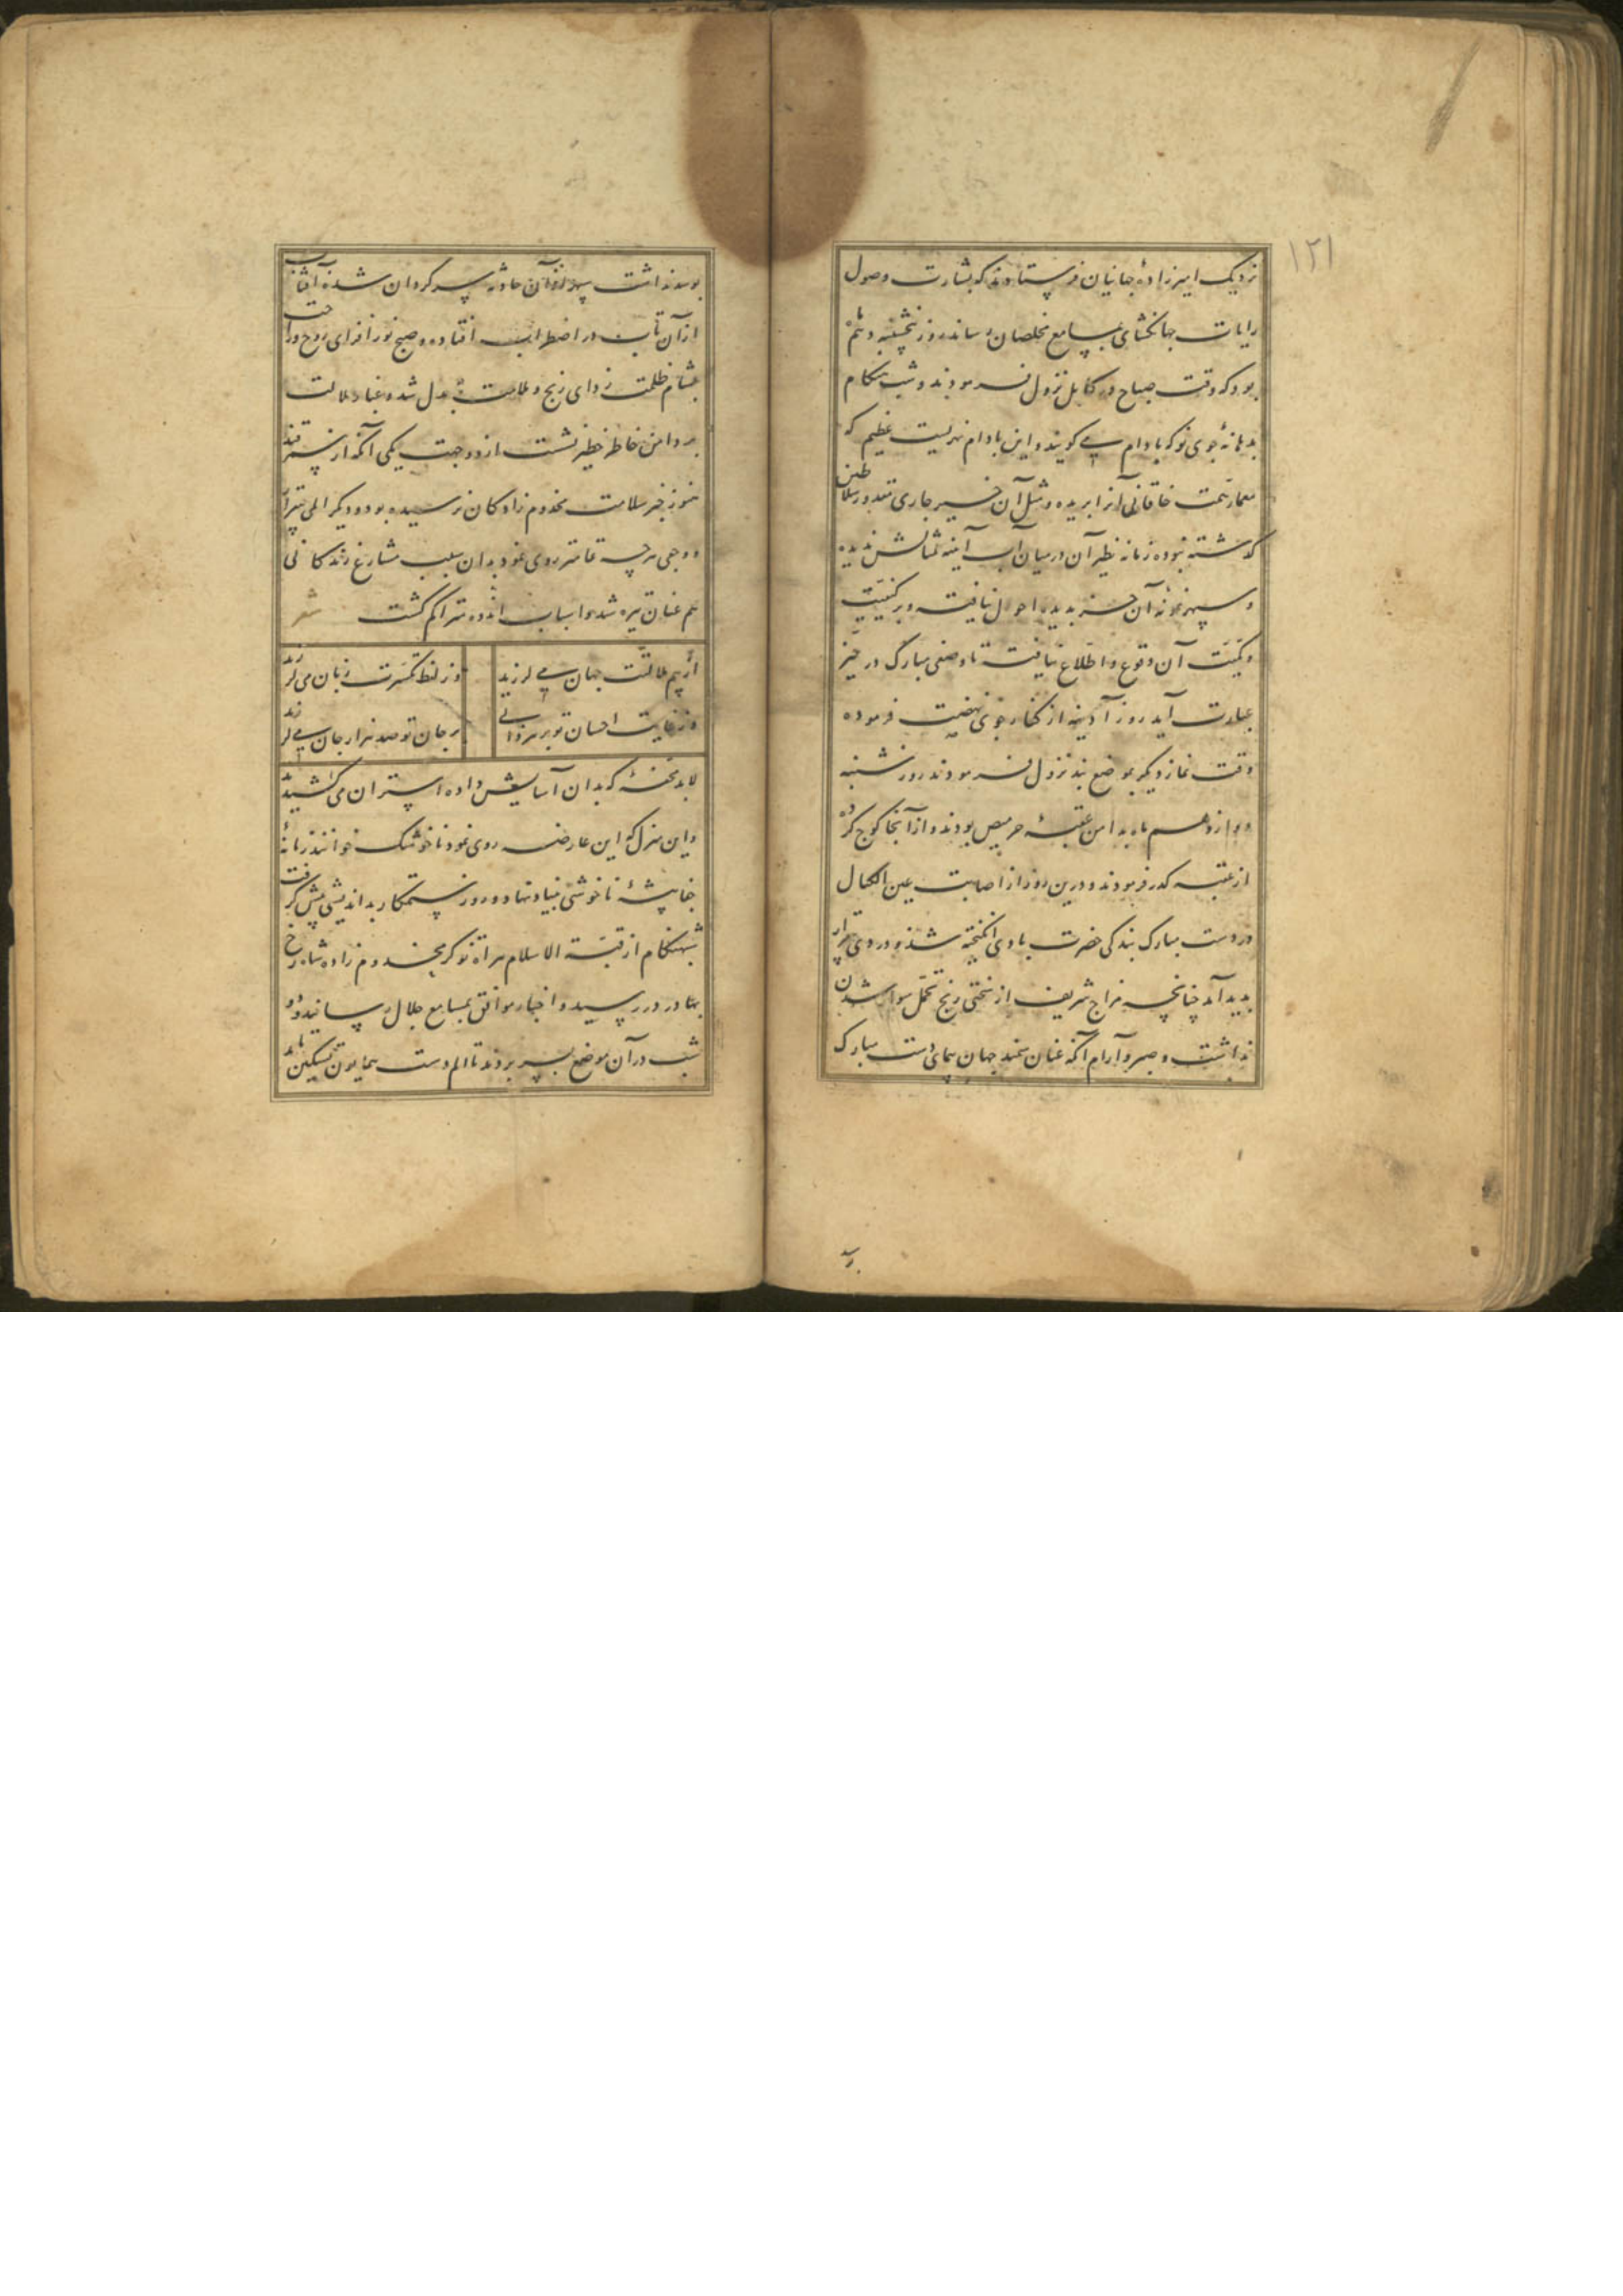 ۱۲۱
نزدیک امیرزاده جهانیان فرستادند که بشارت وصول
رایات جهانکشای بمسامع مخلصان رساند روز پنجشنبه دهم ماه
بود که وقت صباح در کابل نزول فرمودند و شب هنکام
بدهانهٔ جوی نو که بادام می کویند و این بادام نهریست عظیم که
معمار همت خاقانی آنرا بریده و مثل آن جاری سلاطین
کذشته نبوده زمانه نظیر آن در میان آب آینه تمثالش ندیده
و سپهر نمونهٔ آن جز بدیده احول نیافته و بر کیفیت
و کمیت آن وقوع و اطلاع نیافته تا وصفی مبارک در حیز
عبارت آید روز آدینه از کنار جوی نهضت فرموده
وقت نماز دیکر بموضع بند نزول فرمودند روز شنبه
دوازدهم ماه بدامن عقبهٔ بودند و از آنجا کوچ کرده
از عقبه کذر فرمودند و درین روز از اصابت عین الکمال
در دست مبارک بندکی حضرت بادی انکیخته شد و دردی
بدید آمد چنانچه مزاج شریف از سختی رنج تحمل سوار شدن
نداشت و صبر و آرام آنکه عنان سمند جهان پیمای دست مبارک
بوسد نداشت سپهر از آن حادثه سرکردان شده آفتاب
از آن تاب در اضطراب افتاده و صبح نور افزای روح و راحت
بشام ظلمت زدای رنج و ملامت بدل شد و غبار ملالت
بر دامن خاطر خطیر نشست از دو جهت یکی آنکه از سمرقند
هنوز خبر سلامت مخدوم زادکان نرسیده بود و دیکر المی
و وجعی هرچه تمامتر روی نمود بدان سبب مشارع زندکانی
هم عنان تیره شد و اسباب اندوه متراکم کشت شعر
از بیم ملالتت جهان می لرزد
وز لفظ تکسرت زبان می لرزد
وز غایت احسان تو بر هر
بر جان تو صد هزار جان می لرزد
لابد محفهٔ که بدان آسایش داده استران می کشید
و این منزل که این عارضه روی نمود ناخوشک خوانند زمانهٔ
جفاپیشهٔ ناخوشی بنیاد نهاد و روز ستمکار بداندیشی پیش کرفت
شبهنکام از قبة الاسلام هراة نوکر مخدوم زاده شاهرخ
بهادر در رسید و اخبار موافق بمسامع جلال رسانید دو
شب در آن موضع بسر بردند تا الم دست همایون تسکین یابد